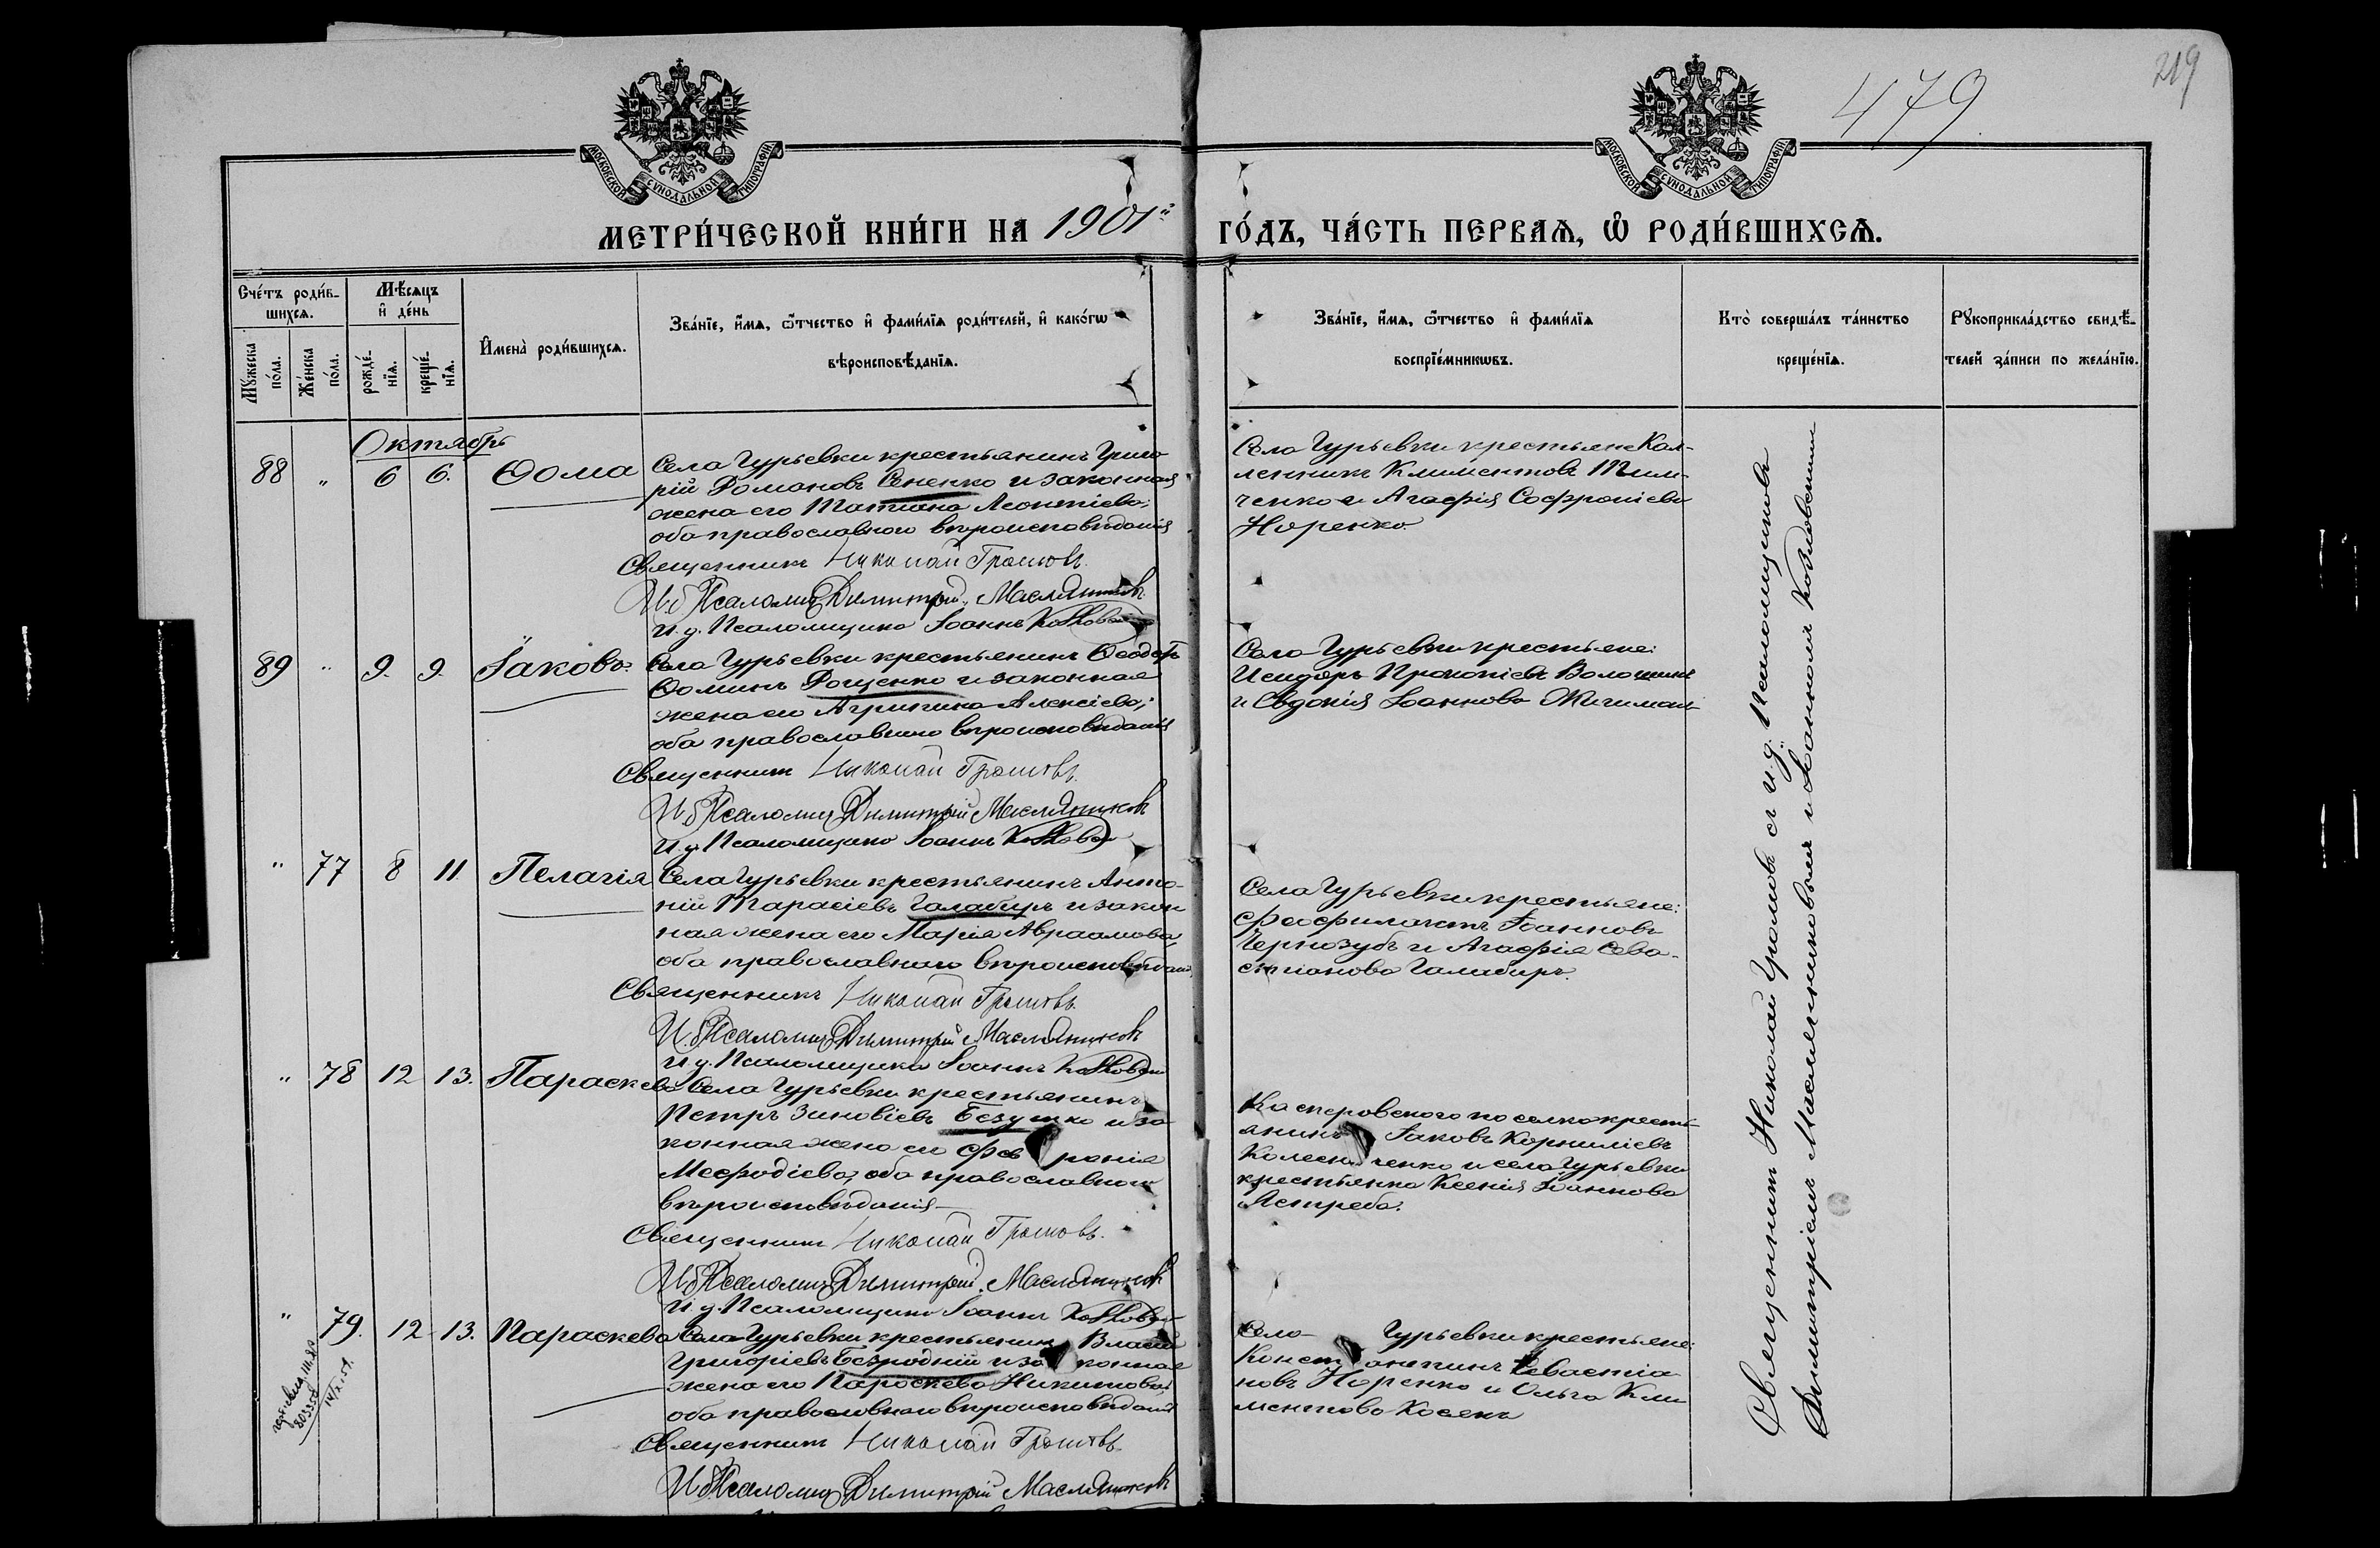 219
479
МОСКОВСКОЙ СѴНОДАЛЬНОЙ ТИПОГРАФІИ
МОСКОВСКОЙ СѴНОДАЛЬНОЙ ТИПОГРАФІИ
МЕТРИ́ЧЕСКОЙ КНИ́ГИ НА 1901й ГО́ДЪ, ЧА́СТЬ ПЕРВАѦ, Ѡ҆ РОДИ́ВШИХСѦ.
Сче́тъ роди́в-
шихсѧ.
Мꙋ́жеска по́ла.
Же́нска по́ла.
Мѣ́сѧцъ
и҆ де́нь
рожде́-
нїѧ.
креще́-
нїѧ.
И҆мена̀ роди́вшихсѧ.
Зва́нїе, и҆́мѧ, ѻ҆́тчество и҆ фами́лїѧ роди́телей, и҆ како́гѡ
вѣроисповѣ́данїѧ.
Зва́нїе, и҆́мѧ, ѻ҆́тчество и҆ фами́лїѧ
воспрїе́мникѡвъ.
Кто̀ соверша́лъ та́инство
креще́нїѧ.
Рꙋкоприкла́дство свидѣ́-
телей за́писи по жела́нїю.
Октябрь
88 " 6 6. Ѳома
Села Гурьевки крестьянинъ Григо
рій Романовъ Сененко и законная
жена его Татіана Леонтіева;
оба православнаго вѣроисповѣданія
Священникъ Николай Громовъ.
И. д. Псаломщ. Димитрій Масляниковъ
И. д. Псаломщика Іоаннъ
Села Гурьевки крестьяне Кал-
леникъ Климентовъ Тим-
ченко и Агафія Софроніева
Норенко.
89 " 9. 9. Іаковъ.
Села Гурьевки крестьянинъ Ѳеодоръ
Ѳоминъ Рощенко и законная
жена его Агрипина Алексіева;
оба православнаго вѣроисповѣданія
Священникъ Николай Громовъ.
И. д. Псаломщ. Димитрій Масляниковъ
И. д. Псаломщика Іоаннъ
Села Гурьевки крестьяне:
Исидоръ Прокопіевъ Волошинъ
и Евдокія Іоаннова
" 77 8 11. Пелагія
Села Гурьевки крестьянинъ Анто-
ній Тарасіевъ Галабиръ и закон
ная жена его Марія Авраамова,
оба православнаго вѣроисповѣдан.
Священникъ Николай Громовъ.
И. д. Псаломщ. Димитрій Масляниковъ
И. д. Псаломщика Іоаннъ
Села Гурьевки крестьяне:
Феофилактъ Іоанновъ
Чернозубъ и Агафія Сева-
стіанова Галабиръ.
" 78 12 13. Параскева
Села Гурьевки крестьянинъ
Петръ Зиновіевъ Безушко и за
конная жена его Фев ронія
Мефодіева, оба православнаго
вѣроисповѣданія
Священникъ Николай Громовъ.
И. д. Псаломщ. Димитрій Масляниковъ
И. д. Псаломщика Іоаннъ
Касперовскаго поселка кресть-
янинъ Іаковъ Корниліевъ
Колесниченко и села Гурьевки
крестьянка Ксенія Іоаннова
Ястреба.
" 79. 12 13. Параскева
Села Гурьевки крестьянинъ Власій
Григоріевъ Безродній и за конная
жена его Параскева Никитова;
оба православнаго вѣроисповѣданія
Священникъ Николай Громовъ
И. д. Псаломщ. Димитрій Масляниковъ
Села Гурьевки крестьяне:
Конст антинъ Севастіа
новъ Норенко и Ольга Кли
ментова Косякъ
Священникъ Николай Громовъ съ и. д. Псаломщиковъ
Димитріемъ Масляниковымъ и Іоанномъ